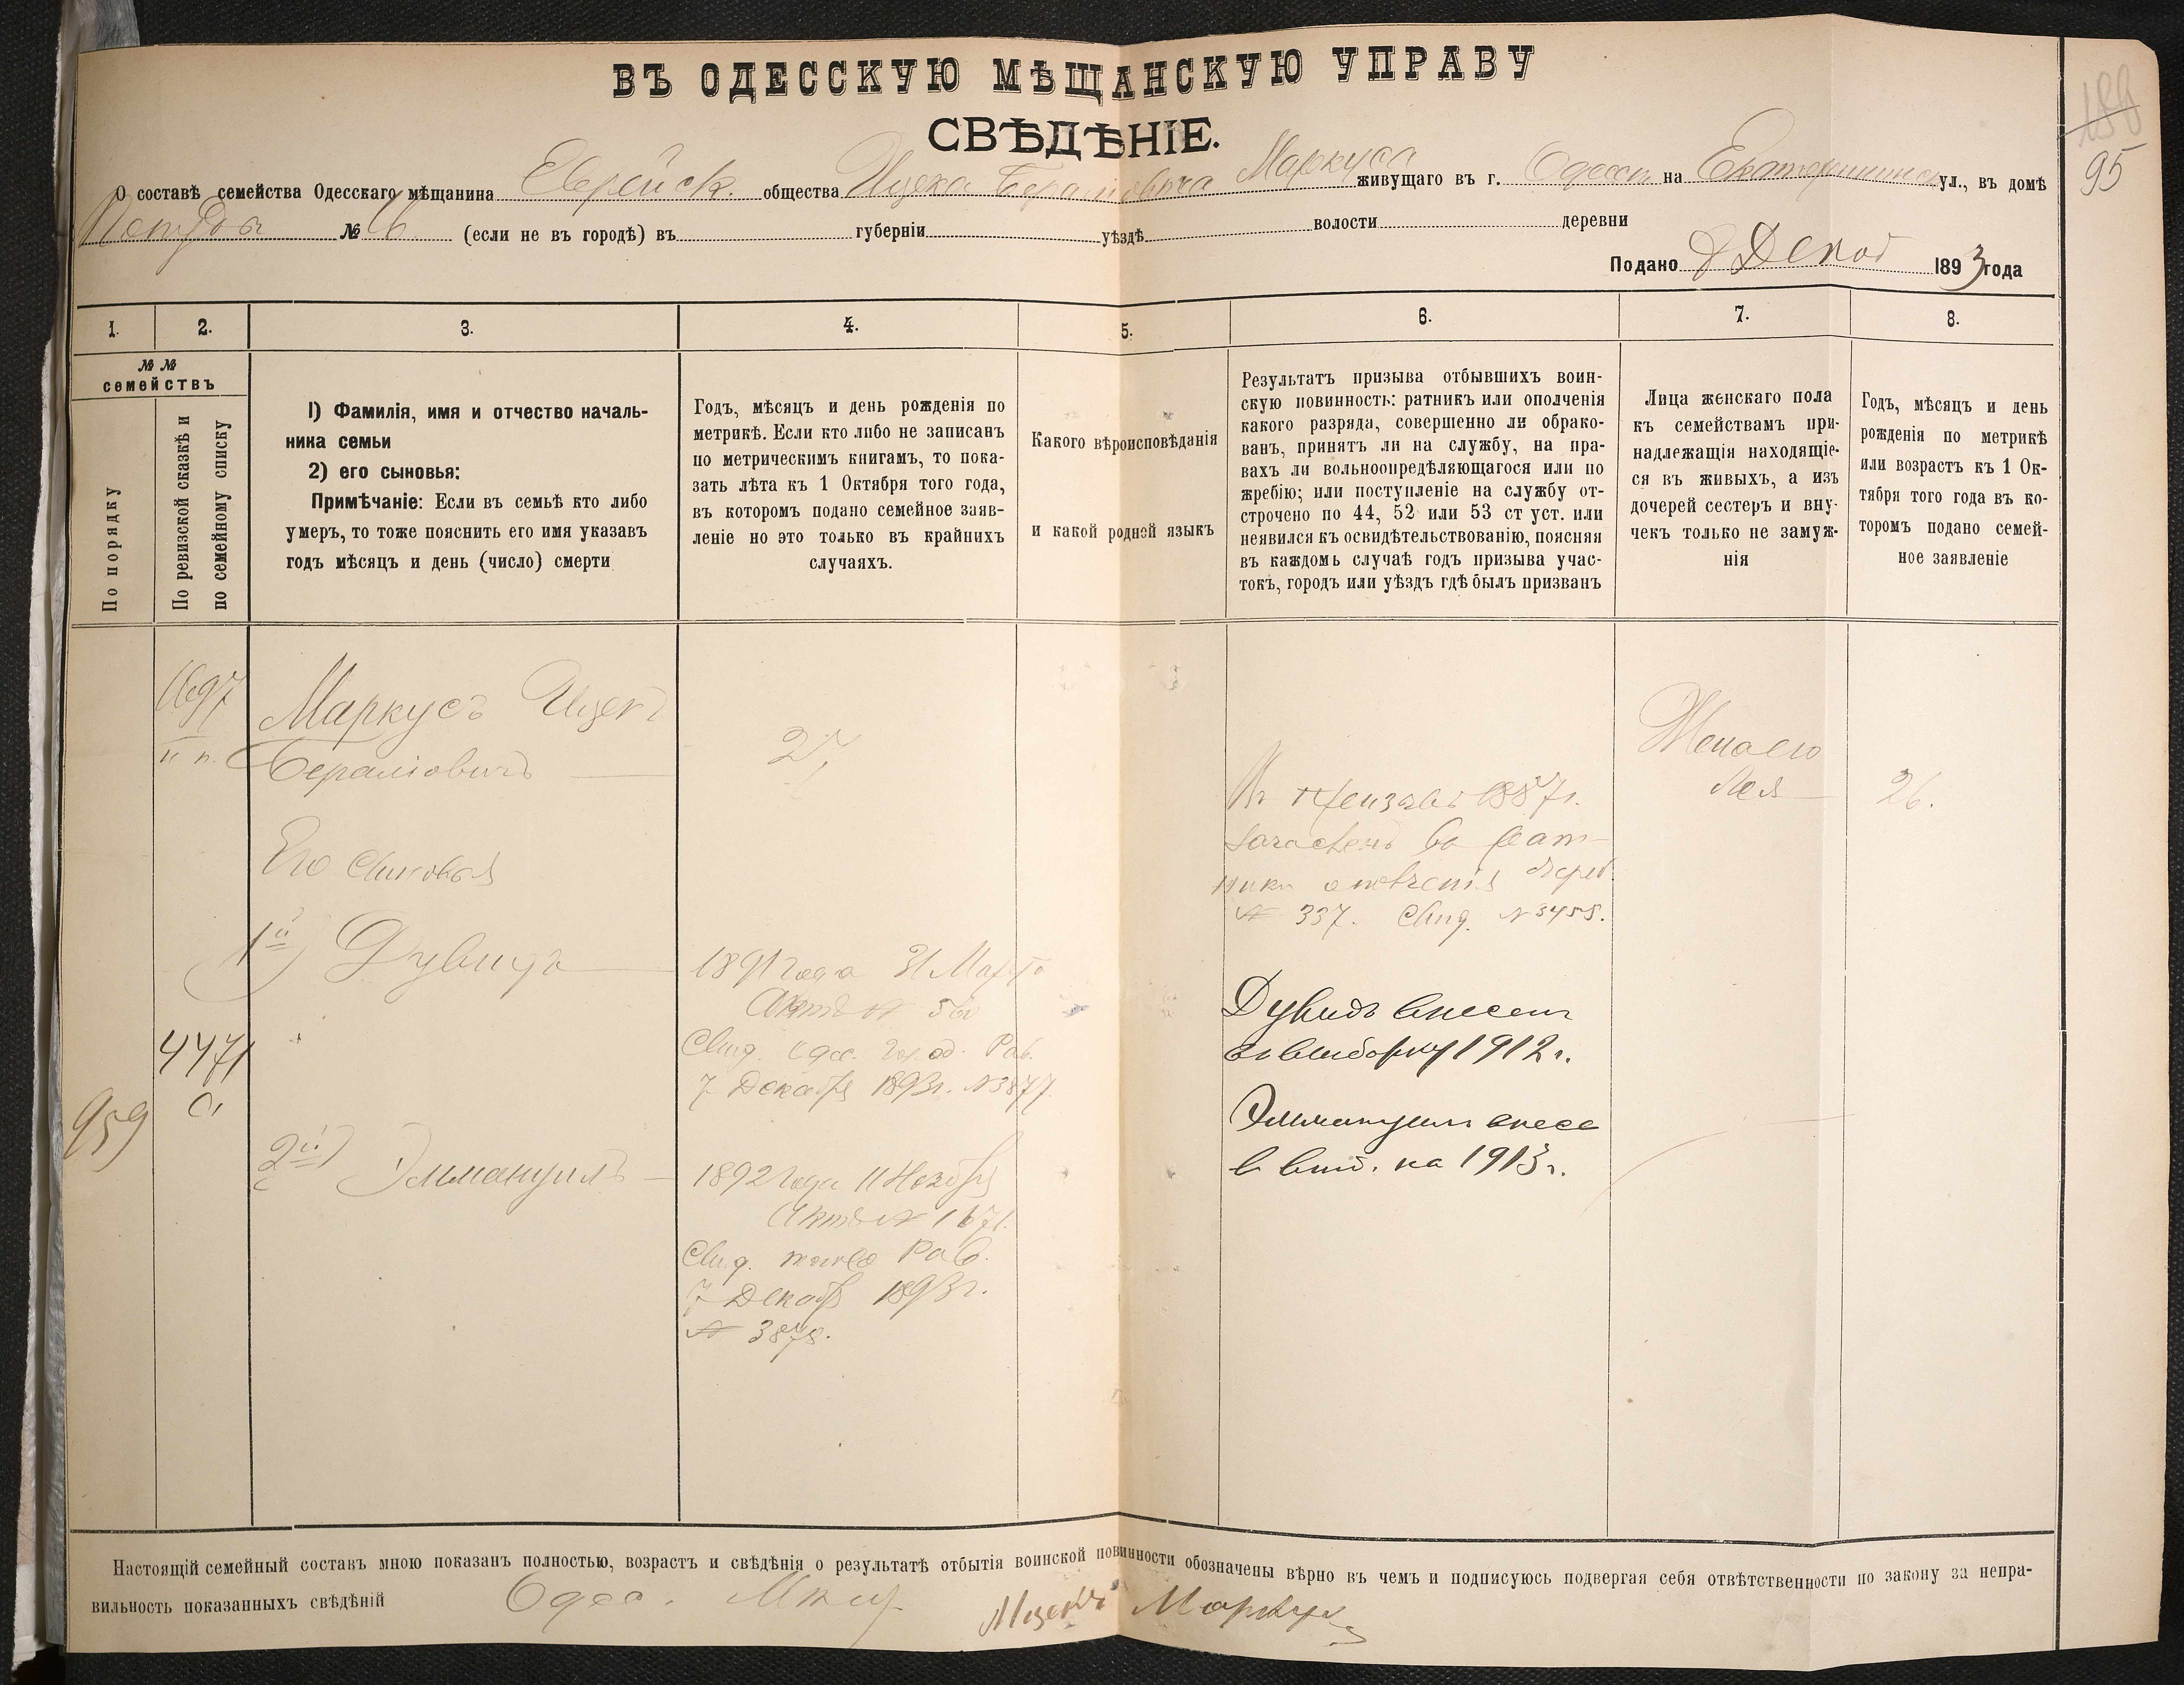 ВЪ ОДЕССКУЮ МѢЩАНСКУЮ УПРАВУ
СВѢДѢНІЕ.
188
95
О составѣ семейства Одесскаго мѣщанина Еврейск. общества Ицека Бераліовича Маркуса живущаго въ г. Одессы на Екатерининск ул., въ домѣ
№ (если не въ городѣ) въ губерніи уѣздѣ волости деревни
Подано 8 Декаб 1893 года
1. 2. 3. 4. 5. 6. 7. 8.
№ №
семействъ
По порядку
По ревизской сказкѣ и
по семейному списку
1) Фамилія, имя и отчество началь-
ника семьи
2) его сыновья:
Примѣчаніе: Если въ семьѣ кто либо
умеръ, то тоже пояснить его имя указавъ
годъ мѣсяцъ и день (число) смерти
Годъ, мѣсяцъ и день рожденія по
метрикѣ. Если кто либо не записанъ
по метрическимъ книгамъ, то пока-
зать лѣта къ 1 Октября того года,
въ которомъ подано семейное заяв-
леніе но это только въ крайнихъ
случаяхъ.
Какого вѣроисповѣданія
и какой родной языкъ
Результатъ призыва отбывшихъ воин-
скую повинность: ратникъ или ополченія
какого разряда, совершенно ли обрако-
ванъ, принятъ ли на службу, на пра-
вахъ ли вольноопредѣляющагося или по
жребію; или поступленіе на службу от-
строчено по 44, 52 или 53 ст уст. или
неявился къ освидѣтельствованію, поясняя
въ каждомъ случаѣ годъ призыва учас-
токъ, городъ или уѣздъ гдѣ былъ призванъ
Лица женскаго пола
къ семействамъ при-
надлежащія находящіе-
ся въ живыхъ, а изъ
дочерей сестеръ и вну-
чекъ только не замуж-
нія
Годъ, мѣсяцъ и день
рожденія по метрикѣ
или возрастъ къ 1 Ок-
тября того года въ ко-
торомъ подано семей-
ное заявленіе
1697
Маркусъ Ицекъ
Бераліовичъ
27
Въ призывъ 1887 г.
зачисленъ въ рат-
ники ополченія жреб.
№ 337. Свид. № 3455.
Жена его
Лея
26.
Его сыновья
1й) Дувидъ
1891 года 31 Марта
Актъ №
Свид. Одес. Город. Рав.
7 Декабря 1893 г. № 3877.
Дувидъ внесенъ
въ выборку 1912 г.
4471
959
2й) Эммануилъ
1892 года 11 Ноября
Актъ № 1671.
Свид. тогоже Рав.
7 Декабря 1893 г.
№ 3878.
Эммануилъ внесе
в выб. на 1913 г.
Настоящій семейный составъ мною показанъ полностью, возрастъ и свѣдѣнія о результатѣ отбытія воинской повинности обозначены вѣрно въ чемъ и подписуюсь подвергая себя отвѣтственности по закону за непра-
вильность показанныхъ свѣдѣній Одес. Ицекъ Маркусъ